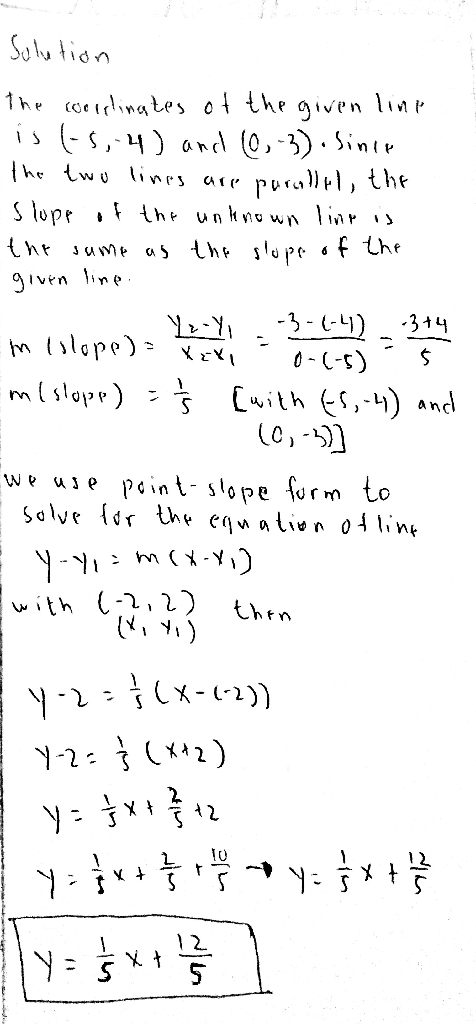 Solution
The coordinates of the given line
is (-5,-4) and (0,-3). Since
the two lines are parallel, the
slope of the unknown line is
the same as the slope of the
given line.
m (slope) = (Y₂-Y₁)/(X₂-X₁) = (-3-(-4))/(0-(-5)) = (-3+4)/5
m (slope) = 1/5 [with (-5,-4) and
(0,-3)]
we use point-slope form to
solve for the equation of line
Y-Y₁ = m(X-X₁)
with (-2,2) then
(X₁ Y₁)
Y-2 = 1/5 (X-(-2))
Y-2 = 1/5 (X+2)
Y = 1/5 X + 2/5 +2
Y = 1/5 X + 2/5 + 10/5 → Y = 1/5 X + 12/5
Y = 1/5 X + 12/5